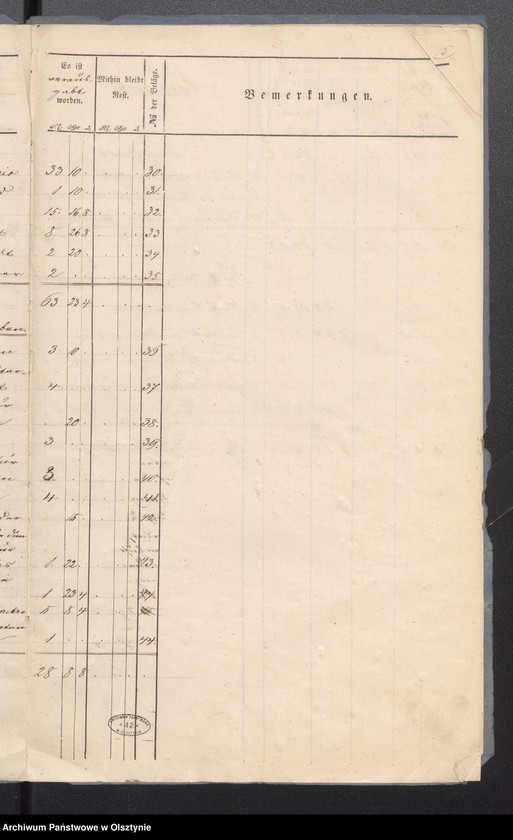 5
Es ist
veraus-
gabt
worden.
Mithin bleibt
Rest.
№ der Beläge.
Bemerkungen.
33 10 . . . . 30.
1 10 . . . . 31.
15. 16 8 . . . 32
8. 26 8 . . . 33
2 20 . . . . 34
2 . . . . . 35
63 23 4 . . .
3 8 . . . . 36
4 . . . . . 37
. 20 . . . . 38.
3 . . . . . 39.
3 . . . . . 40.
4 . . . . . 41.
. 15 . . . . 42.
1. 22 . . . . 43.
1 23 4 . . .
5 8 4 . . .
1 . . . . . 44.
28 8 8 . . .
42
Archiwum Państwowe w Olsztynie